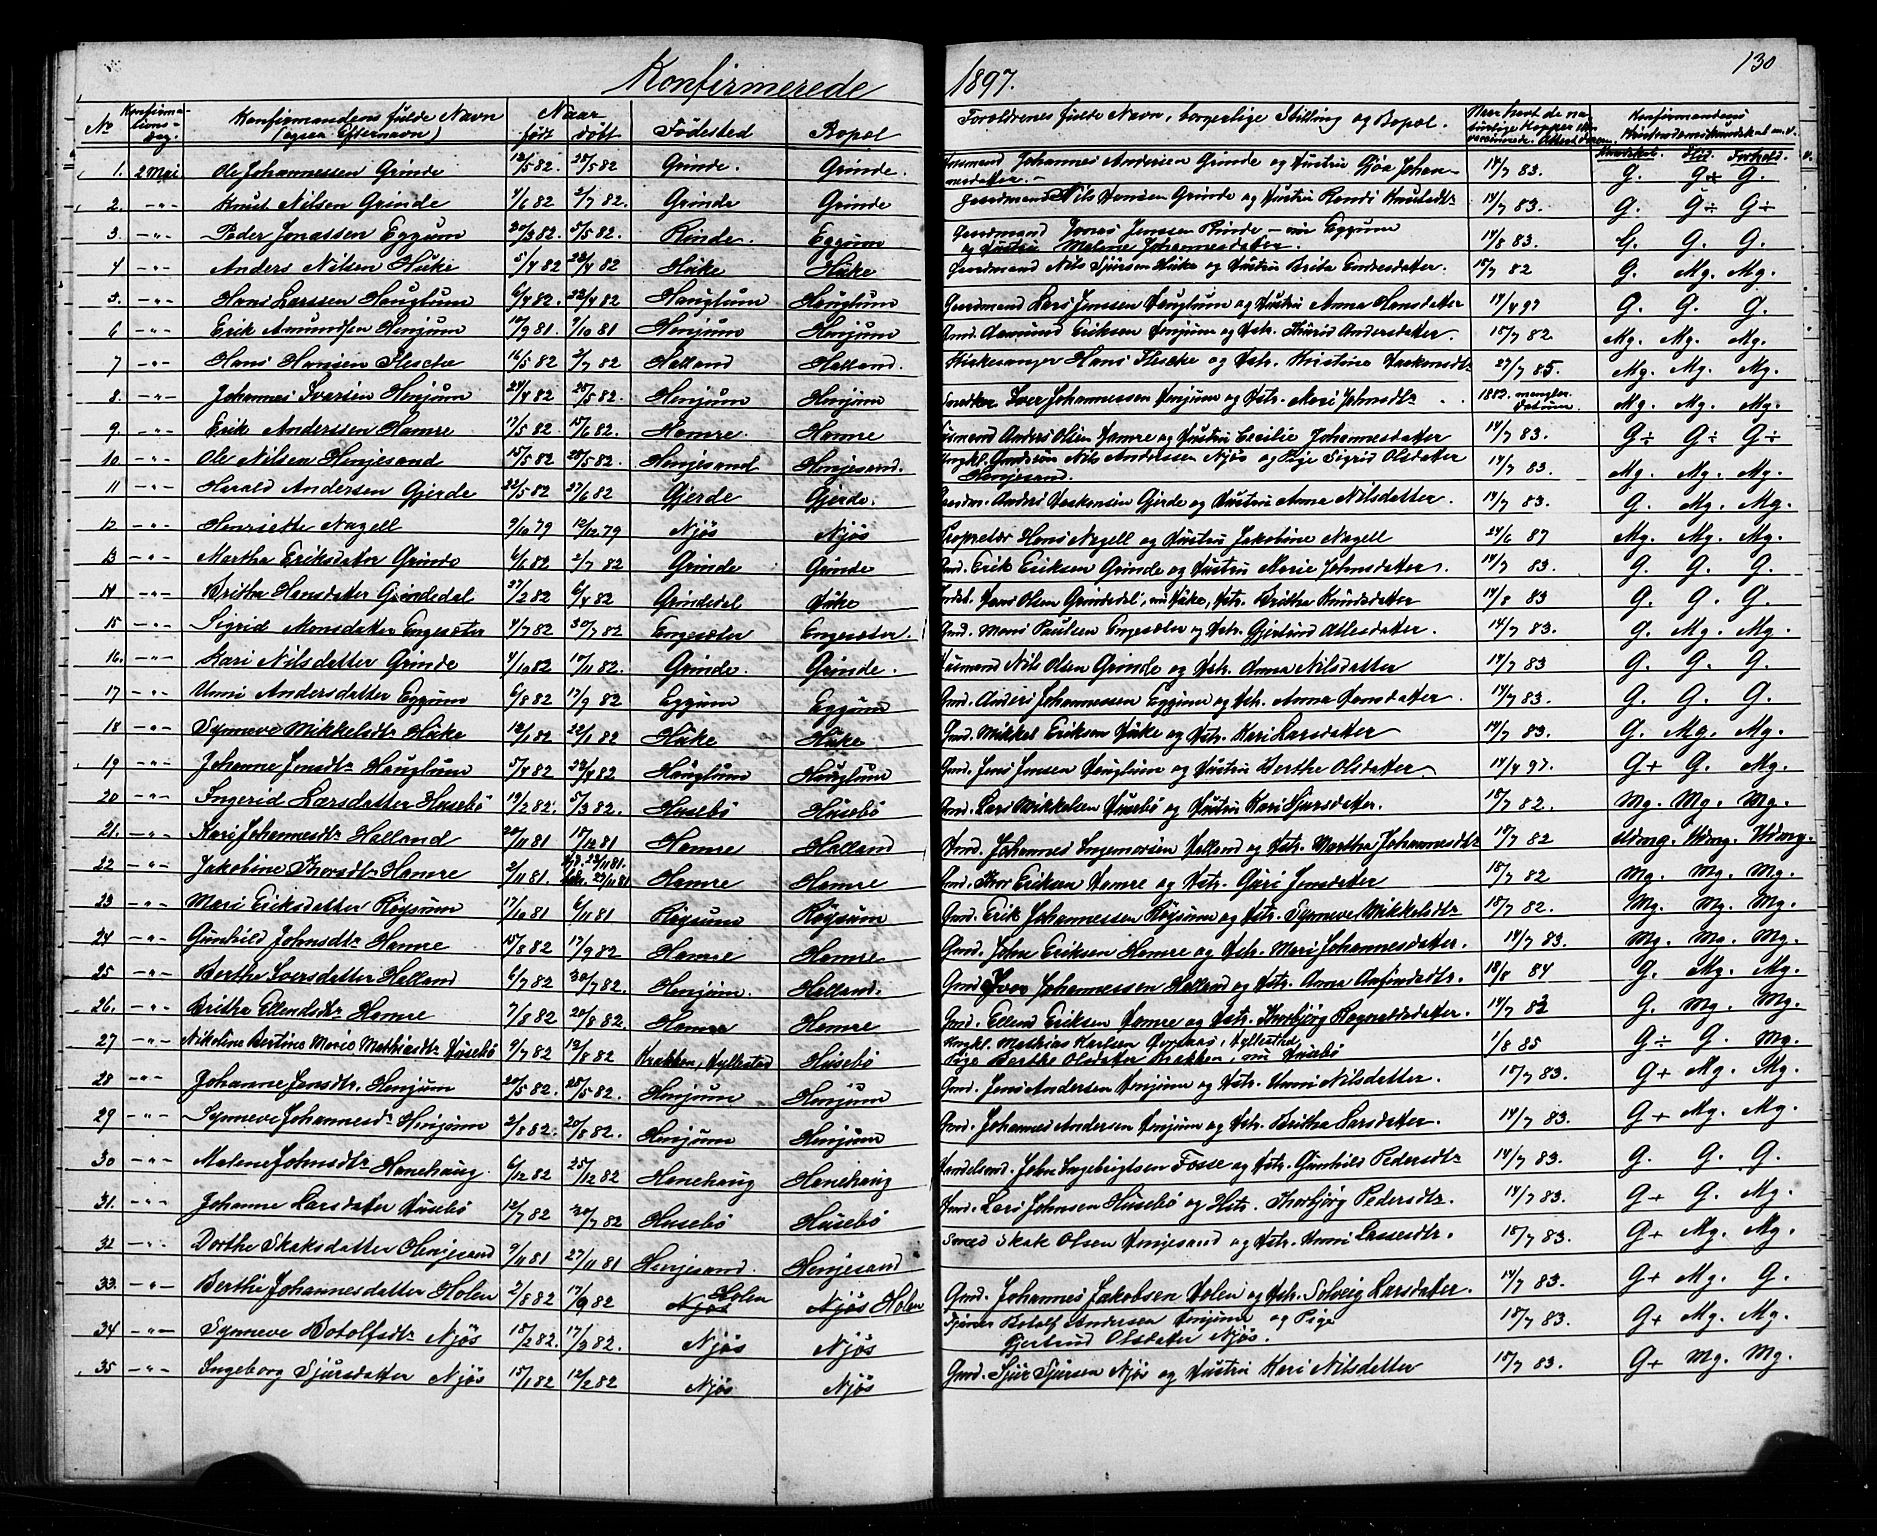 Konfirmerede 1897. 130
No Konfirmations-dag. Konfirmandens fulde Navn (ogsaa Efternavn) Naar født døbt Fødested Bopæl Forældrenes fulde Navn, borgerlige Stilling og Bopæl. Konfirmandens Kristendomskundskab m.v. Kundskab. Flid. Forhold.
1. 2 Mai Ole Johannessen Grinde 12/5 82 28/5 82 Grinde. Grinde. Husmand Johannes Andersen Grinde og Hustru Gjøa Johan- 14/7 83. G. G+ G.
nesdatter.
2. -"- Knut Nilsen Grinde 4/6 82 2/7 82. Grinde Grinde Gaardmand Nils Hansen Grinde og Hustru Randi Knutsdtr 14/7 83. G. G÷ G÷
3. -"- Peder Jonassen Eggum 20/3 82. 5/5 82. Rinde. Eggum Gaardmand Jonas Jenssen Rinde - nu Eggum 14/8 83. G. G. G.
og Hustru Malene Johannesdatter.
4 -"- Anders Nilsen Huke 5/4 82 23/4 82 Huke Huke Gaardmand Nils Sjursen Huke og Hustru Brita Endresdatter. 18/7 82 G. Mg. Mg.
5. -"- Hans Larssen Hauglum 6/4 82. 22/4 82 Hauglum Hauglum Gaardmand Lars Jenssen Hauglum og Hustru Anna Hansdatter 14/4 97 G. G. G.
6 -"- Erik Amundsen Henjum 18/9 81. 9/10 81 Henjum Henjum Gmd. Aamund Eriksen Henjum og Hstr. Thurid Andersdatter. 18/7 82 Mg. Mg. Mg.
7 -"- Hans Hansen Flesche 16/5 82 2/7 82 Halland Halland. Kirkesanger Hans Flesche og Hstr. Kristine Haakensdtr 27/7 85. Mg. Mg. Mg.
8. -"- Johannes Iversen Henjum 24/4 82 28/5 82 Henjum Henjum Iver Johannessen Henjum og Hstr. Mari Johnsdtr 1882. mangler datum. Mg. Mg. Mg.
9. -"- Erik Anderssen Hamre 17/5 82 18/6 82. Hamre. Hamre Husmand Anders Olsen Hamre og Hustru Cecilie Johannesdatter 14/7 83. G÷ G÷ G÷
10 -"- Ole Nilsen Henjesand 15/5 82 28/5 82. Henjesand Henjesand. Ungkl. Gmdssøn Nils Anderssen Njøs og Pige Sigrid Olsdatter 14/7 83. Mg. Mg. Mg.
Henjesand.
11 -"- Harald Andersen Gjerde 22/5 82 27/6 82 Gjerde Gjerde. Anders Haakensen Gjerde og Hustru Anna Nilsdatter. 14/7 83. G. Mg. Mg.
12 -"- Henriette Nagell 9/10 79 12/12 79 Njøs Njøs Proprietær Hans Nagell og Hustru Jakobine Nagell 24/6 87 Mg. Mg. Mg.
13 -"- Martha Eriksdatter Grinde 6/6 82 2/7 82 Grinde Grinde Gmd. Erik Eriksen Grinde og Hustru Marie Johnsdatter. 14/7 83. G. G. G.
14 -"- Britha Hansdatter Grindedal 27/2 82 6/4 82 Grindedal Huke Hans Olsen Grindedal, nu Huke, Hstr. Britha Knudsdatter 14/8 83 G. G. G.
15 -"- Sigrid Monsdatter Engesæter 4/7 82 30/7 82 Engesæter Engesæter. Gmd. Mons Paulsen Engesæter og Hstr. Gjertrud Atlesdatter. 14/7 83. G. Mg. Mg.
16. -"- Kari Nilsdatter Grinde 4/10 82 18/11 82. Grinde. Grinde. Husmand Nils Olsen Grinde og Hstr. Anna Nilsdatter 14/7 83 G. G. G.
17 -"- Unni Andersdatter Eggum 6/8 82 17/9 82 Eggum Eggum Gmd. Anders Johannessen Eggum og Hstr. Anna Hansdatter. 14/7 83. G. G. G.
18 -"- Synneve Mikkelsdtr Huke 12/1 82 22/1 82 Huke Huke Gmd. Mikkel Eriksen Huke og Hstr. Kari Larsdatter 14/7 83. G. Mg. Mg.
19 -"- Johanne Jensdtr Hauglum 5/4 82 23/4 82 Hauglum Hauglum Gmd. Jens Jensen Hauglum og Hustru Berthe Olsdatter. 14/4 97. G+ G. Mg.
20 -"- Ingerid Larsdatter Husebø 19/2 82. 5/3 82. Husebø Husebø Gmd. Lars Mikkelsen Husebø og Hustru Kari Sjursdatter. 18/7 82. Mg. Mg. Mg.
21. -"- Kari Johannesdtr Halland 20/11 81 18/12 81 Hamre Halland Gmd. Johannes Ingemarsen Halland og Hstr. Martha Johannesdtr 18/7 82 Udmg. Udmg. Udmg.
22 -"- Jakobine Thorsdtr Hamre 2/11 81. 23/11 81. Hamre Hamre Gmd. Thor Eriksen Hamre og Hstr. Guri Jensdatter 18/7 82 Mg. Mg. Mg.
23 -"- Mari Eriksdatter Røysum 17/10 81 6/11 81 Røysum Røysum Gmd. Erik Johannessen Røysum og Hstr. Synneve Mikkelsdtr 18/7 82. Mg. Mg. Mg.
24 -"- Gunhild Johnsdtr Hamre 15/8 82 17/9 82 Hamre Hamre Gmd. John Eriksen Hamre og Hstr. Mari Johannesdatter. 14/7 83. Mg. Mg. Mg.
25 -"- Berthe Iversdatter Halland 6/7 82 30/7 82. Henjum. Halland. Gmd Iver Johannessen Halland og Hstr. Anna Anfindsdtr. 18/8 84 G. Mg. Mg.
26. -"- Britha Ellendsdtr Hamre 7/8 82 20/8 82. Hamre Hamre Gmd. Ellend Eriksen Hamre og Hstr. Thorbjørg Ragnvaldsdatter. 14/7 83 G. Mg. Mg.
27 -"- Nikoline Bertine Marie Mathiasdtr Husebø 9/7 82 12/8 82 Krakken, Hyllestad Husebø Ungkl. Mathias Karlsen, Hyllestad, 1/8 85 G÷ G. Mg.
Pige Berthe Olsdatter Krakken, nu Husebø
28 -"- Johanne Jensdtr. Henjum 20/5 82. 28/5 82. Henjum Henjum Gmd. Jens Andersen Henjum og Hstr. Unni Nilsdatter. 18/7 83. G+ Mg. Mg.
29 -"- Synneve Johannesdtr Henjum 2/8 82. 20/8 82. Henjum Henjum Gmd. Johannes Andersen Henjum og Hstr. Britha Larsdatter. 14/7 83. G+ Mg. Mg.
30 -"- Malene Johnsdtr Hanehaug 6/12 82 25/12 82 Hanehaug Hanehaug Handelsmd. John Ingebrigtsen Fosse og Hstr. Gunhild Pedersdtr 14/7 83. G. G. G.
31. -"- Johanne Larsdatter Husebø 12/7 82 30/7 82 Husebø Husebø Gmd. Lars Johnsen Husebø og Hstr. Thorbjørg Pedersdtr. 14/7 83. G+ G. Mg.
32 -"- Dorthe Skaksdatter Henjesand 9/11 81 27/11 81 Henjesand. Henjesand Skak Olsen Henjesand og Hstr. Unni Lassesdtr. 18/7 83. G+ Mg. Mg.
33. -"- Berthe Johannesdatter Holen 2/8 82 17/9 82 Njøs Holen Njøs Holen Gmd. Johannes Jakobsen Holen og Hstr. Solveig Larsdatter. 14/7 83. G+ Mg. G.
34 -"- Synneve Botolfsdtr Njøs 18/2 82. 17/3 82. Njøs Njøs Tjener Botolf Andersen Henjum og Pige 18/7 83. G+ Mg. Mg.
Gjertrud Olsdatter Njøs.
35 -"- Ingeborg Sjursdatter Njøs 15/1 82 12/2 82 Njøs Njøs Gmd. Sjur Sjursen Njøs og Hustru Kari Nilsdatter 18/7 83. G+ Mg. Mg.